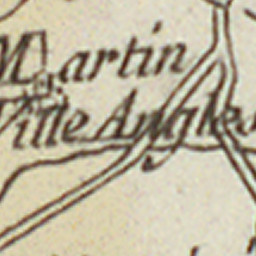 Martin
Ville Angles